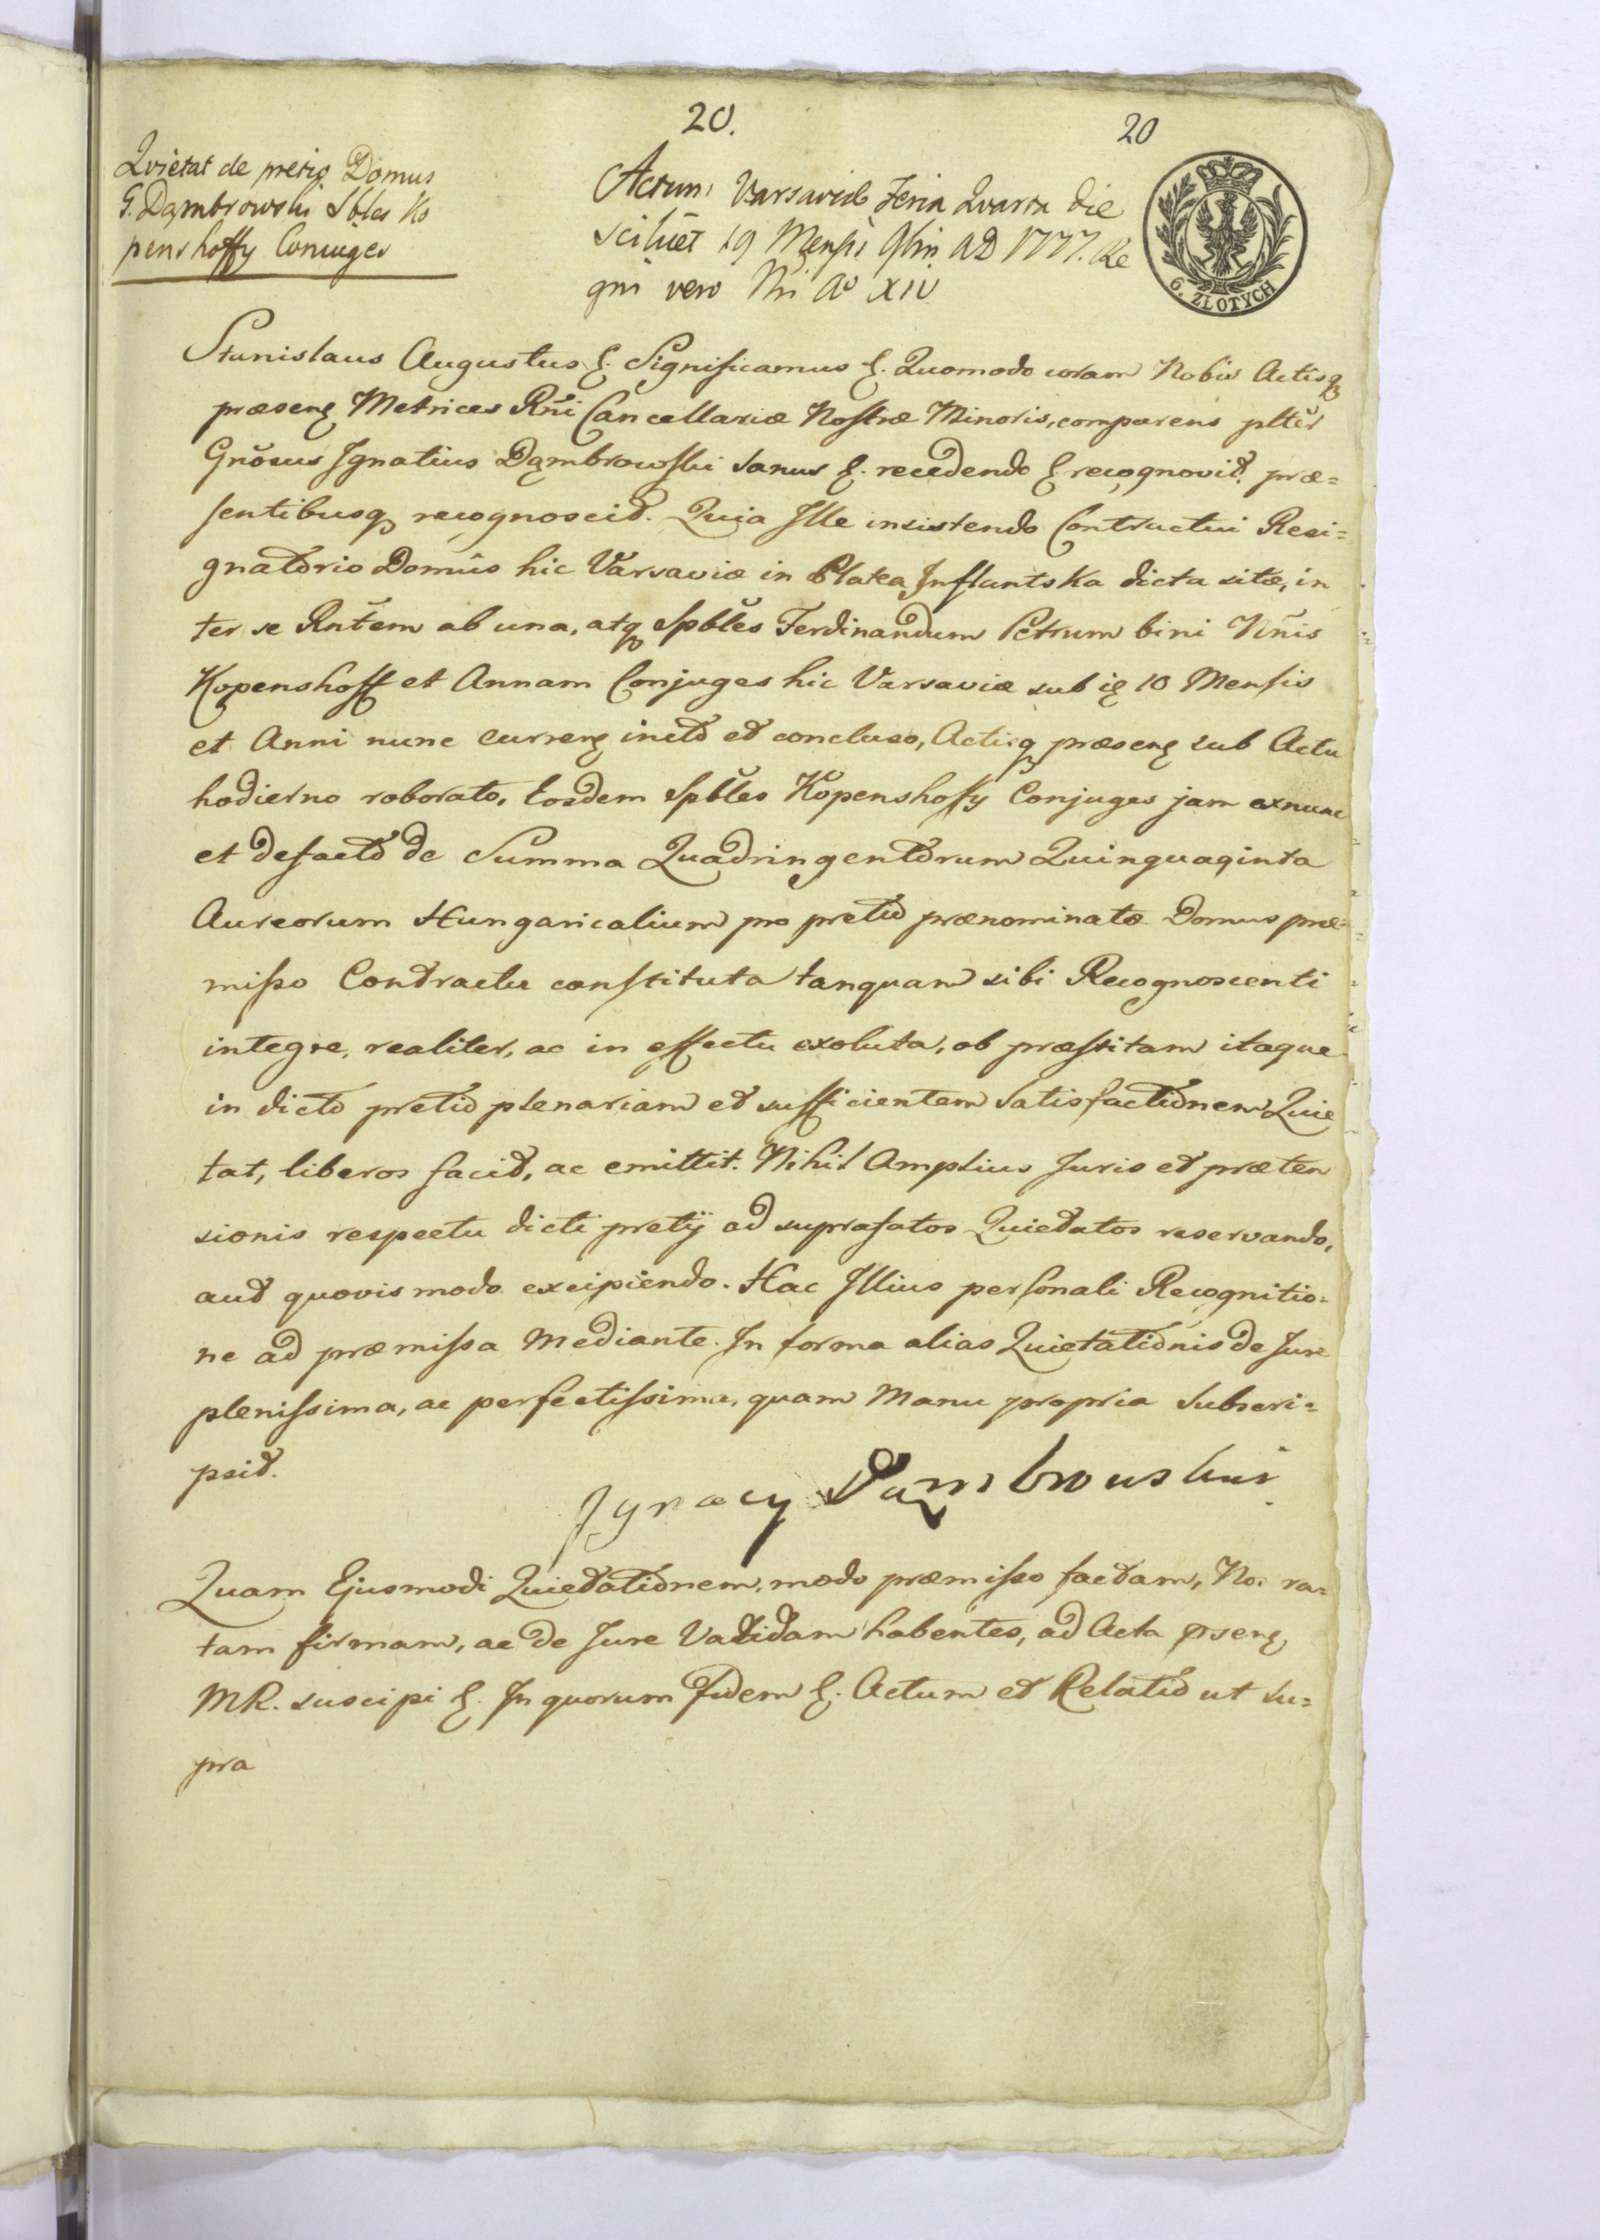 20.
20
Qvietat de pretio Domus
G. Dąmbrowski Sbles Ko
penshoffy Coniuges
Actum Varsaviæ Feria Qvarta die
scilicet 19 Mensis 9bris AD 1777. Re
gni vero Nri Ao XIV
6. ZŁOTYCH
Stanislaus Augustus &. Significamus &. Quomodo coram Nobis Actisq
præsen Metrices Rni Cancellariæ Nostræ Minoris, comparens plter
Gnosus Ignatius Dąmbrowski sanus &. recedendo & recognovit præ=
sentibusq recognoscit. Quia Ille insistendo Contractui Resi=
gnatorio Domûs hic Varsaviæ in Platea Inflantska dicta sitæ, in
ter se Rntem ab una, atq Spbles Ferdinandum Petrum bini Nnis
Kopenshoff et Annam Conjuges hic Varsaviæ sub 10 Mensis
et Anni nunc curren inito et concluso, Actisq præsen sub Actu
hodierno roborato, Eosdem Spbles Kopenshoffy Conjuges jam exnunc
et defacto de Summa Quadringentorum Quinquaginta
Aureorum Hungaricalium pro pretio prænominatæ Domus præ=
misso Contractu constituta tanquam sibi Recognoscenti
integre, realiter, ac in effectu exoluta, ob præstitam itaque
in dicto pretio plenariam et sufficientem Satisfactionem Quie
tat, liberos facit, ac emittit. Nihil Amplius Juris et præten
sionis respectu dicti pretij ad suprafatos Quietatos reservando,
aut quovis modo excipiendo. Hac Illius personali Recognitio=
ne ad præmissa Mediante. In forma alias Quietationis de Jure
plenissima, ac perfectissima, quam Manu propria Subscri=
psit.
Ignacy Dąmbrowski
Quam Ejusmodi Quietationem, modo præmisso factam, Nos ra=
tam firmam, ac de Jure Validam habentes, ad Acta psen
MR. suscipi &. In quorum fidem &. Actum et Relatio ut su=
pra